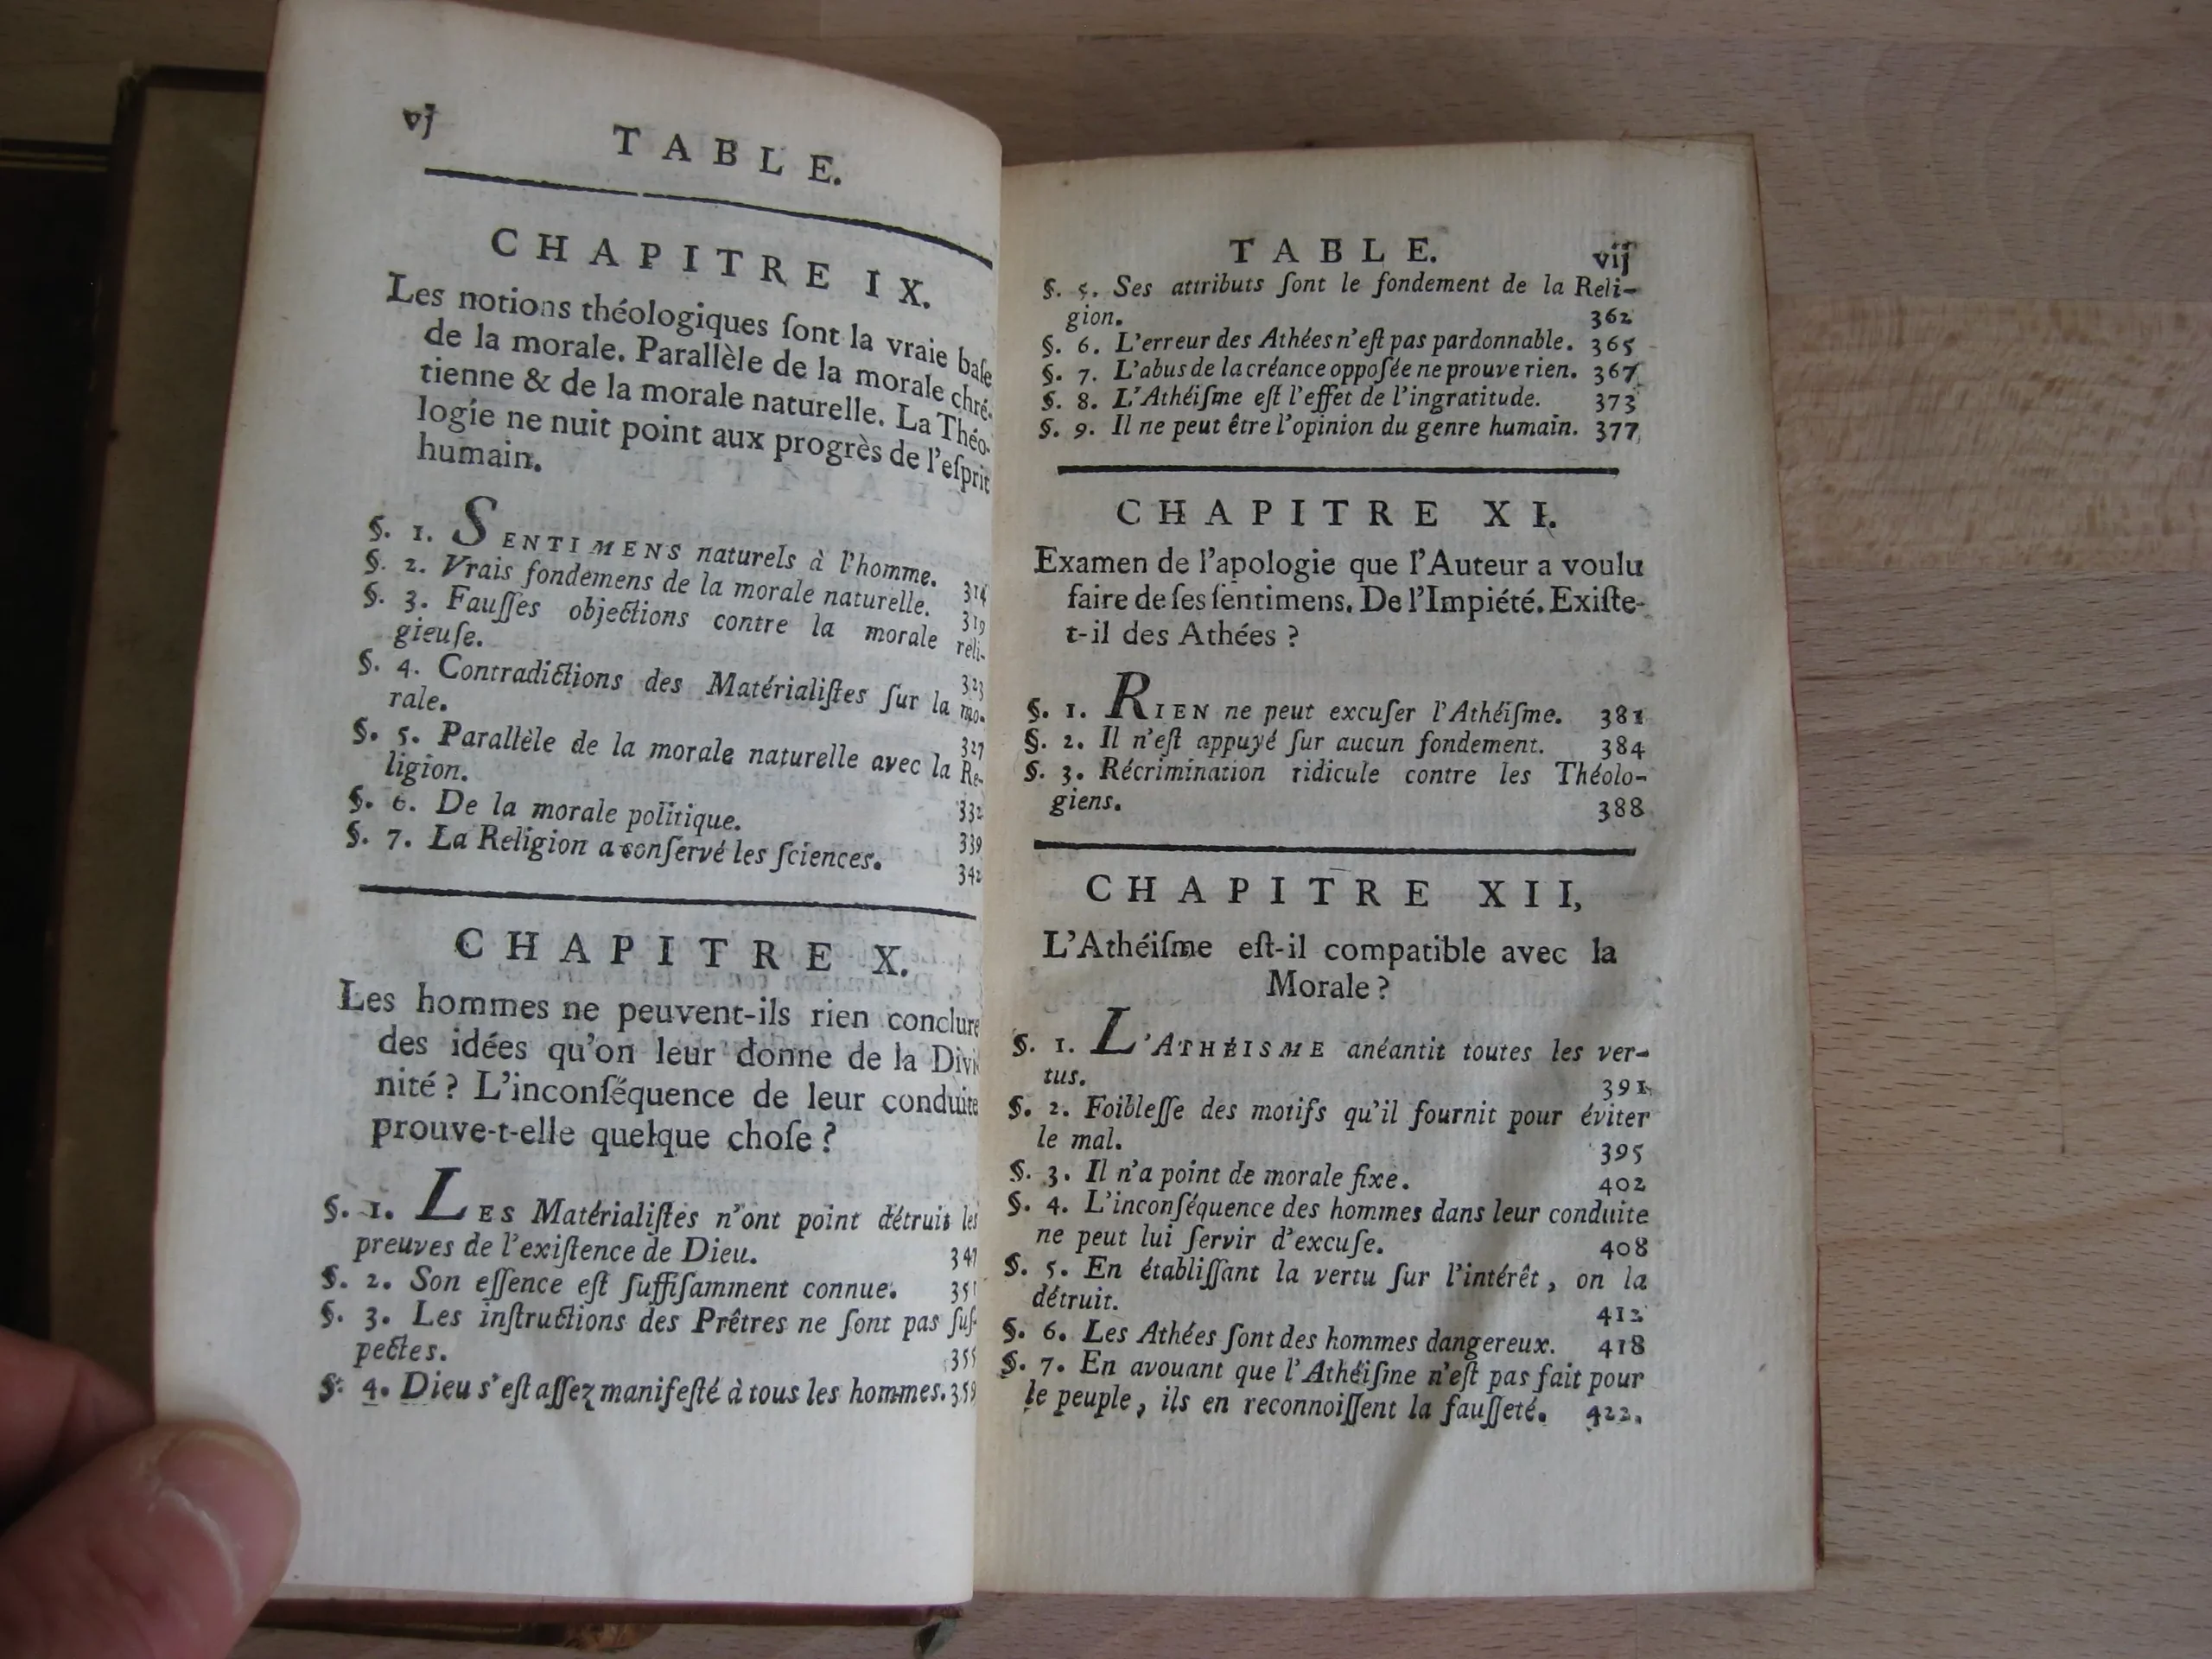 vj
TABLE.
CHAPITRE IX.
Les notions théologiques ſont la vraie baſe
de la morale. Parallèle de la morale chré-
tienne & de la morale naturelle. La Théo-
logie ne nuit point aux progrès de l'eſprit
humain.
§. 1. SENTIMENS naturels à l'homme. 314
§. 2. Vrais fondemens de la morale naturelle. 319
§. 3. Fauſſes objections contre la morale reli-
gieuſe. 323
§. 4. Contradictions des Matérialiſtes ſur la mo-
rale. 327
§. 5. Parallèle de la morale naturelle avec la Re-
ligion. 332
§. 6. De la morale politique. 339
§. 7. La Religion a conſervé les ſciences. 342
CHAPITRE X.
Les hommes ne peuvent-ils rien conclure
des idées qu'on leur donne de la Divi-
nité ? L'inconſéquence de leur conduite
prouve-t-elle quelque choſe ?
§. 1. LES Matérialiſtes n'ont point détruit les
preuves de l'exiſtence de Dieu. 347
§. 2. Son eſſence eſt ſuffiſamment connue. 351
§. 3. Les inſtructions des Prêtres ne ſont pas ſuſ-
pectes. 355
§. 4. Dieu s'eſt aſſez manifeſté à tous les hommes. 359
TABLE. vij
§. 5. Ses attributs ſont le fondement de la Reli-
gion. 362
§. 6. L'erreur des Athées n'eſt pas pardonnable. 365
§. 7. L'abus de la créance oppoſée ne prouve rien. 367
§. 8. L'Athéiſme eſt l'effet de l'ingratitude. 373
§. 9. Il ne peut être l'opinion du genre humain. 377
CHAPITRE XI.
Examen de l'apologie que l'Auteur a voulu
faire de ſes ſentimens. De l'Impiété. Exiſte-
t-il des Athées ?
§. 1. RIEN ne peut excuſer l'Athéiſme. 381
§. 2. Il n'eſt appuyé ſur aucun fondement. 384
§. 3. Récrimination ridicule contre les Théolo-
giens. 388
CHAPITRE XII,
L'Athéiſme eſt-il compatible avec la
Morale ?
§. 1. L'ATHÉISME anéantit toutes les ver-
tus. 391
§. 2. Foibleſſe des motifs qu'il fournit pour éviter
le mal. 395
§. 3. Il n'a point de morale fixe. 402
§. 4. L'inconſéquence des hommes dans leur conduite
ne peut lui ſervir d'excuſe. 408
§. 5. En établiſſant la vertu ſur l'intérêt, on la
détruit. 412
§. 6. Les Athées ſont des hommes dangereux. 418
§. 7. En avouant que l'Athéiſme n'eſt pas fait pour
le peuple, ils en reconnoiſſent la fauſſeté. 422.